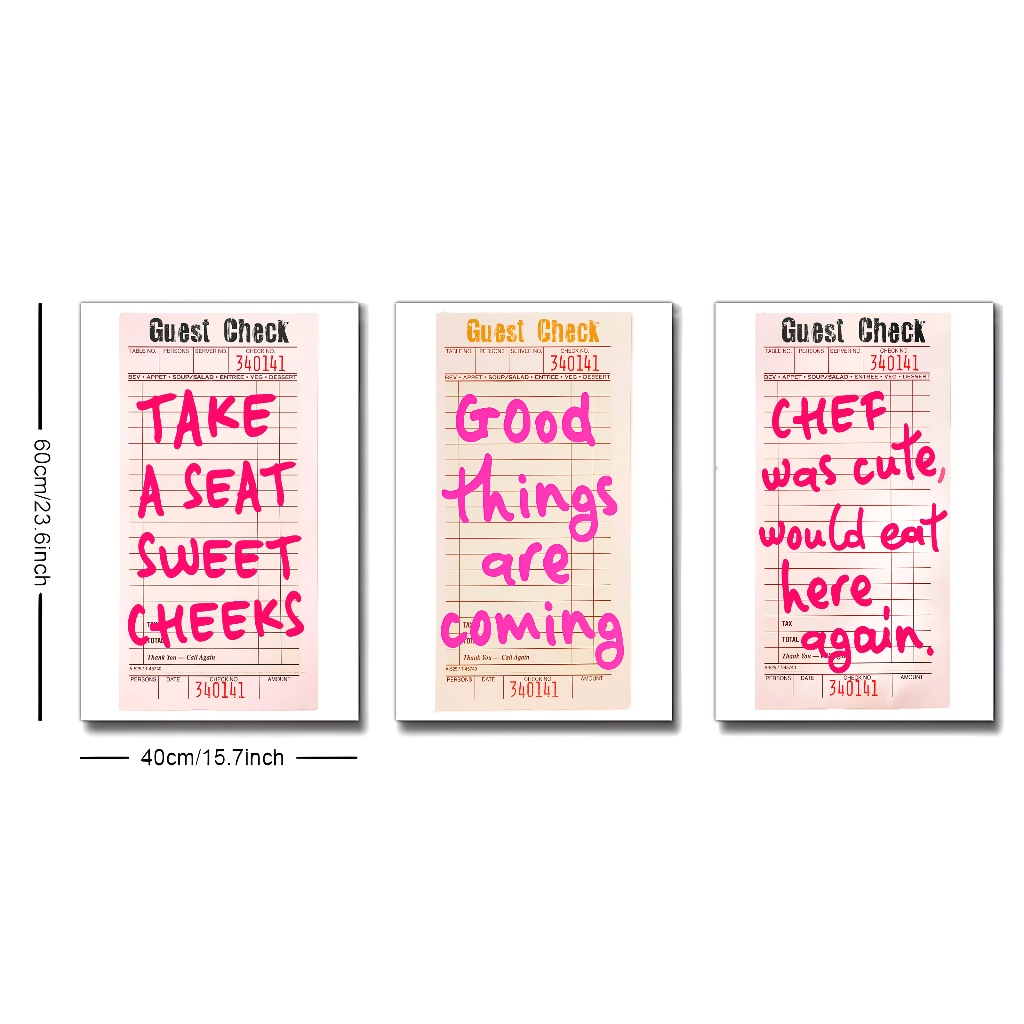 60cm/23.6inch
Guest Check
TABLE NO. PERSONS SERVER NO. CHECK NO.
340141
BEV • APPET • SOUP/SALAD • ENTREE • VEG • DESSERT
TAKE
A SEAT
SWEET
CHEEKS
TAX
TOTAL
Thank You — Call Again
PERSONS DATE CHECK NO. AMOUNT
340141
Guest Check
TABLE NO. PERSONS SERVER NO. CHECK NO.
340141
BEV • APPET • SOUP/SALAD • ENTREE • VEG • DESSERT
Good
things
are
coming
Thank You — Call Again
PERSONS DATE CHECK NO. AMOUNT
340141
Guest Check
TABLE NO. PERSONS SERVER NO. CHECK NO.
340141
BEV • APPET • SOUP/SALAD • ENTREE • VEG • DESSERT
CHEF
was cute,
would eat
here
again.
TAX
TOTAL
Thank You —
PERSONS DATE CHECK NO. AMOUNT
340141
40cm/15.7inch